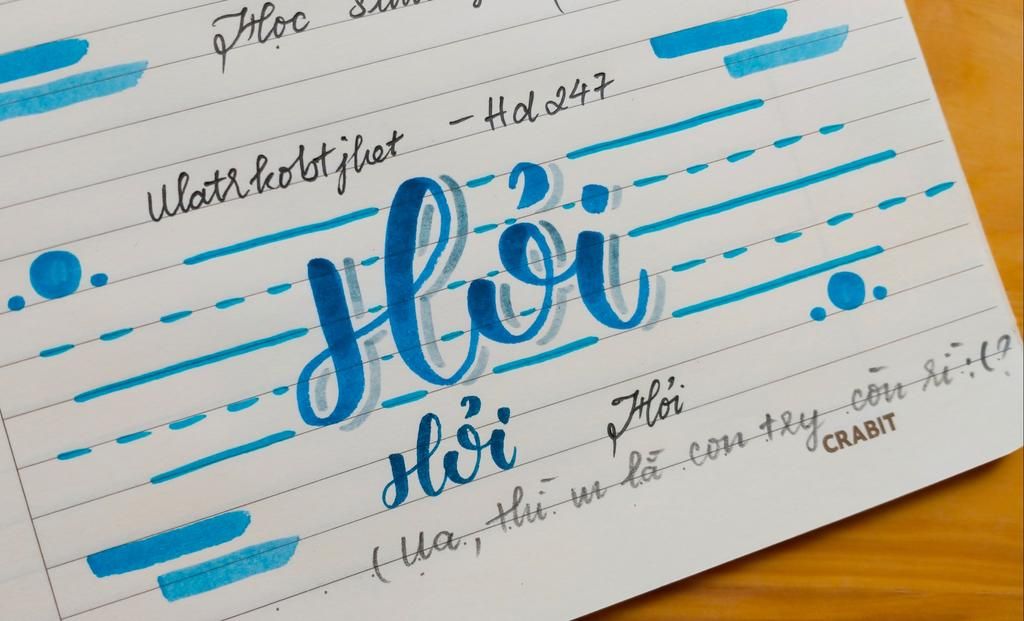 Học
Ulatrkobtjhet - Hd247
Hỏi
Hỏi Hỏi
(Ụa, thì m là con try còn rì :(?
CRABIT